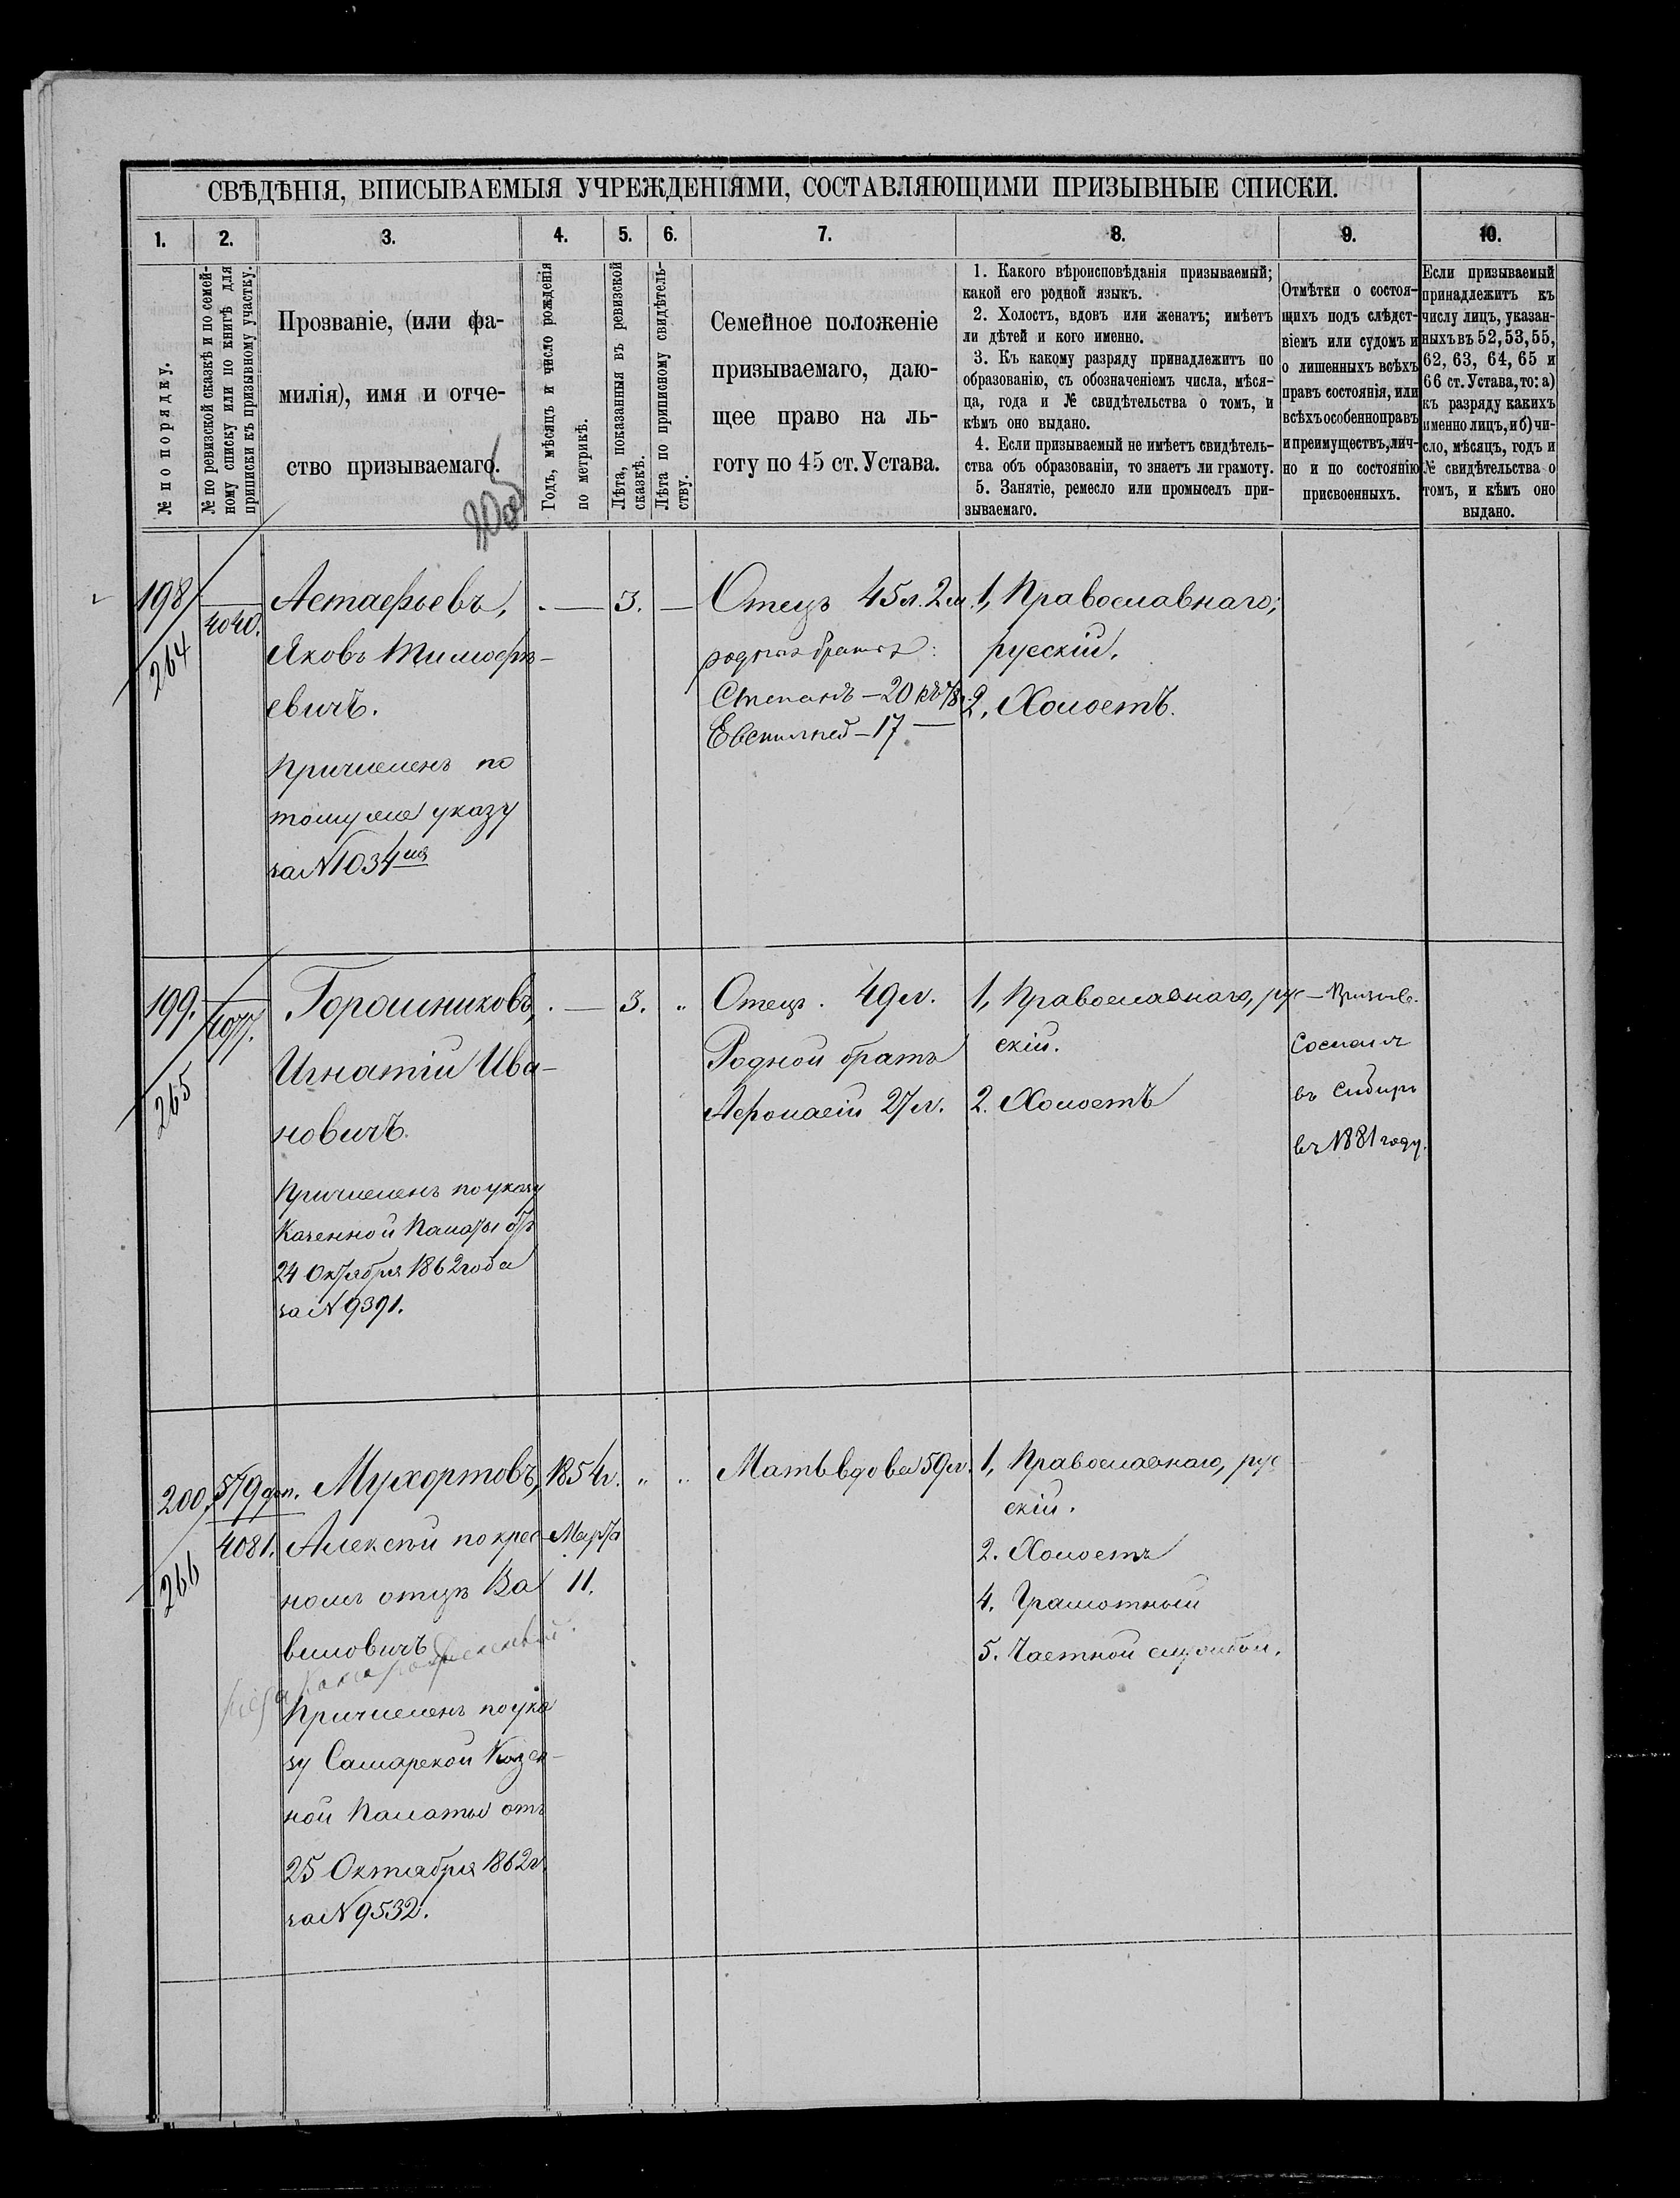 СВѢДѢНІЯ, ВПИСЫВАЕМЫЯ УЧРЕЖДЕНІЯМИ, СОСТАВЛЯЮЩИМИ ПРИЗЫВНЫЕ СПИСКИ.
1. 2. 3. 4. 5. 6. 7. 8. 9. 10.
№ по порядку.
№ по ревизской сказкѣ и по семей-
ному списку или по книгѣ для
приписки къ призывному участку.
Прозваніе, (или фа-
милія), имя и отче-
ство призываемаго.
Годъ, мѣсяцъ и число рожденія
по метрикѣ.
Лѣта, показанныя въ ревизской
сказкѣ.
Лѣта по приписному свидѣтель-
ству.
Семейное положеніе
призываемаго, даю-
щее право на ль-
готу по 45 ст. Устава.
1. Какого вѣроисповѣданія призываемый;
какой его родной языкъ.
2. Холостъ, вдовъ или женатъ; имѣетъ
ли дѣтей и кого именно.
3. Къ какому разряду принадлежитъ по
образованію, съ обозначеніемъ числа, мѣся-
ца, года и № свидѣтельства о томъ, и
кѣмъ оно выдано.
4. Если призываемый не имѣетъ свидѣтель-
ства объ образованіи, то знаетъ ли грамоту.
5. Занятіе, ремесло или промыселъ при-
зываемаго.
Отмѣтки о состоя-
щихъ подъ слѣдст-
віемъ или судомъ и
о лишенныхъ всѣхъ
правъ состоянія, или
всѣхъ особенно правъ
и преимуществъ, лич-
но и по состоянію
присвоенныхъ.
Если призываемый
принадлежитъ къ
числу лицъ, указан-
ныхъ въ 52, 53, 55,
62, 63, 64, 65 и
66 ст. Устава, то: а)
къ разряду какихъ
именно лицъ, и б) чи-
сло, мѣсяцъ, годъ и
№ свидѣтельства о
томъ, и кѣмъ оно
выдано.
198
264
4040.
Астафьевъ,
Яковъ Тимофе-
евичъ.
Причисленъ по
тому же указу
за № 1034
— 3. —
Отецъ 45 л. 2
родныхъ брата:
Степанъ — 20
— 17 —
1, Православнаго;
русскій.
2, Холостъ.
199.
265
4077.
Горошниковъ,
Игнатій Ива-
новичъ.
Причисленъ по указу
Казенной Палаты отъ
24 Октября 1862 года
за № 9391.
— 3. „
Отецъ. 49 л.
Родной братъ
Афонасій 27 л.
1, Православнаго, рус-
скій.
2. Холостъ
Сосланъ
въ Сибирь
въ 1881 году.
200.
266
579 доп.
4081.
Мухортовъ,
Алексѣй по крес-
номъ отцѣ Ва
виловичъ
Причисленъ по ука
зу Самарской Казен-
ной Палаты отъ
25 Октября 1862 г.
за № 9532.
1854 г.
Марта
11.
„ „
Мать вдова 59 л.
1, Православнаго, рус
скій.
2. Холостъ
4. Грамотный
5. Частной службой.